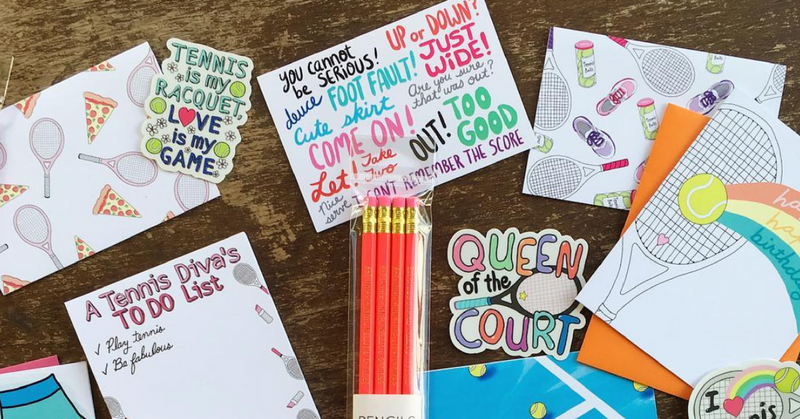 TENNIS
is my
RACQUET
LOVE
is my
GAME
YOU CANNOT
be SERIOUS!
UP or DOWN?
JUST
WIDE!
deuce
FOOT FAULT!
Are you sure
that was out?
Cute skirt
COME ON!
OUT!
TOO
GOOD
Let!
Take
Two
Nice
serve
I CAN'T REMEMBER THE SCORE
Tennis
Balls
A Tennis Diva's
TO DO List
✓ Play tennis
✓ Be fabulous
QUEEN
of the
COURT
happy
birthday
PENCILS
I